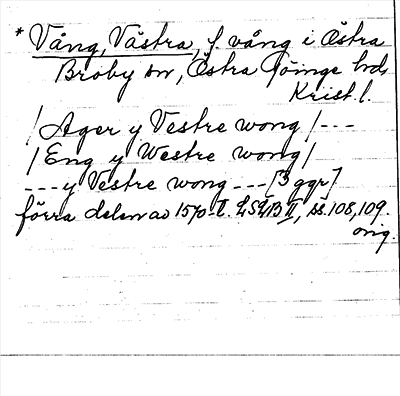 * Vång, Västra, f. vång i Östra
Broby sn, Östra Göinge hd,
Krist. l.
| Ager y Vestre wong | ---
| Eng y Westre wong |
--- y Vestre wong --- [3 ggr]
förra delen av 1570-t. LSLB II, ss. 108, 109.
orig.